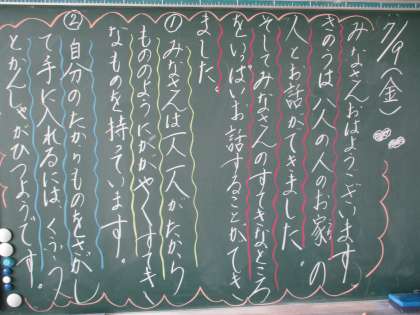 7/9（金）
みなさんおはようございます。
きのうは八人の人のお家の
人とお話ができました。
そしてみなさんのすてきなところ
をいっぱいお話することができ
ました。
①みなさんは一人一人がたから
もののようにかがやくすてき
なものを持っています。
②自分のたからものをさがし
て手に入れるには、くふう
とかんしゃがひつようです。